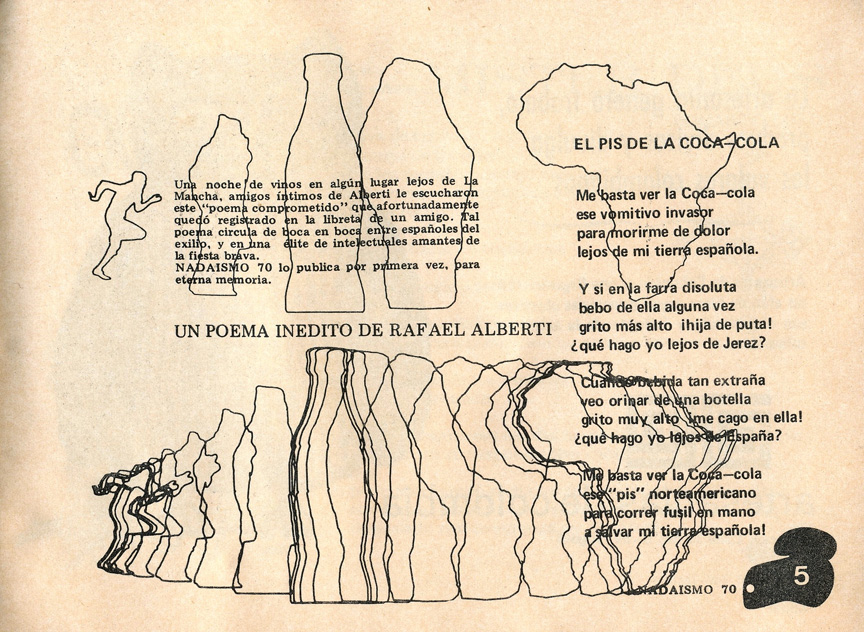 Una noche de vinos en algún lugar lejos de La
Mancha, amigos íntimos de Alberti le escucharon
este "poema comprometido" que afortunadamente
quedó registrado en la libreta de un amigo. Tal
poema circula de boca en boca entre españoles del
exilio, y en una élite de intelectuales amantes de
la fiesta brava.
NADAISMO 70 lo publica por primera vez, para
eterna memoria.
UN POEMA INEDITO DE RAFAEL ALBERTI
EL PIS DE LA COCA—COLA
Me basta ver la Coca—cola
ese vomitivo invasor
para morirme de dolor
lejos de mi tierra española.
Y si en la farra disoluta
bebo de ella alguna vez
grito más alto ¡hija de puta!
¿qué hago yo lejos de Jerez?
Cuando bebida tan extraña
veo orinar de una botella
grito muy alto ¡me cago en ella!
¿qué hago yo lejos de España?
Me basta ver la Coca—cola
ese "pis" norteamericano
para correr fusil en mano
a salvar mi tierra española!
NADAISMO 70
5